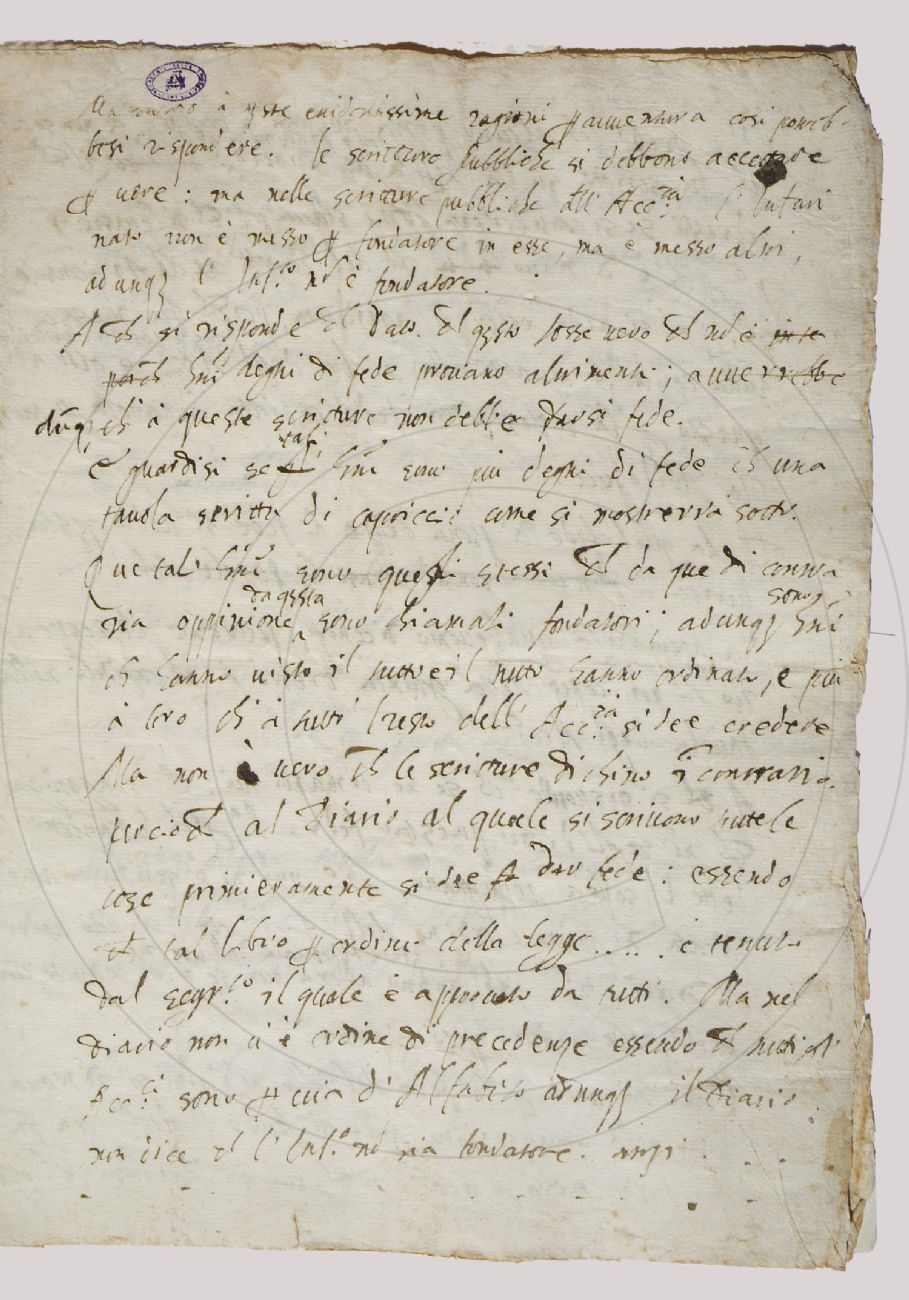 Ma a q̃ste euidentissime ragioni ꝑauuentura così potreb-
besi rispondere. le scritture pubbliche si debbono accettare
ꝑ uere: ma nelle scritture pubbliche dell' Acc.ia l' Infari
nato non è messo ꝑ fondatore in esse, ma è messo altri,
adunqꝫ l' Inf.to nō è fondatore.
A ch̄ si risponde ch̄ dato ch̄ q̃sto fosse uero ch̄ nō è
ꝑch̄ degni di fede prouano altrimenti; auuerrebbe
dūqꝫ ch̄ à queste scritture non debbe darsi fede.
E guardisi se tali sono più degni di fede ch̄ una
tauola scritta di capriccio come si mostrerrà sotto.
Que tali sono quegli stessi ch̄ da que di contra
ria oppinione da q̃sta sono chiamati fondatori; adunqꝫ sono
ch̄ hanno uisto il tutto e il tutto hanno ordinato, e più
à loro ch̄ à tutti l resto dell' Acc.ia si dee credere
Ma non è uero ch̄ le scritture dichino ī contrario.
percioch̄ al Diario al quale si scriuono tutte le
cose primieramente si dee dar fede: essendo
ch̄ tal libro ꝑ ordine della legge ..... è tenuto
dal segr.io il quale è approuato da tutti. Ma nel
diario non ui è ordine di precedenze essendo ch̄ tutti gli
Acc.ci sono ꝑ uia d' Alfabeto adunqꝫ il Diario
non dice ch̄ l' Inf.to nō sia fondatore. anzi . . .